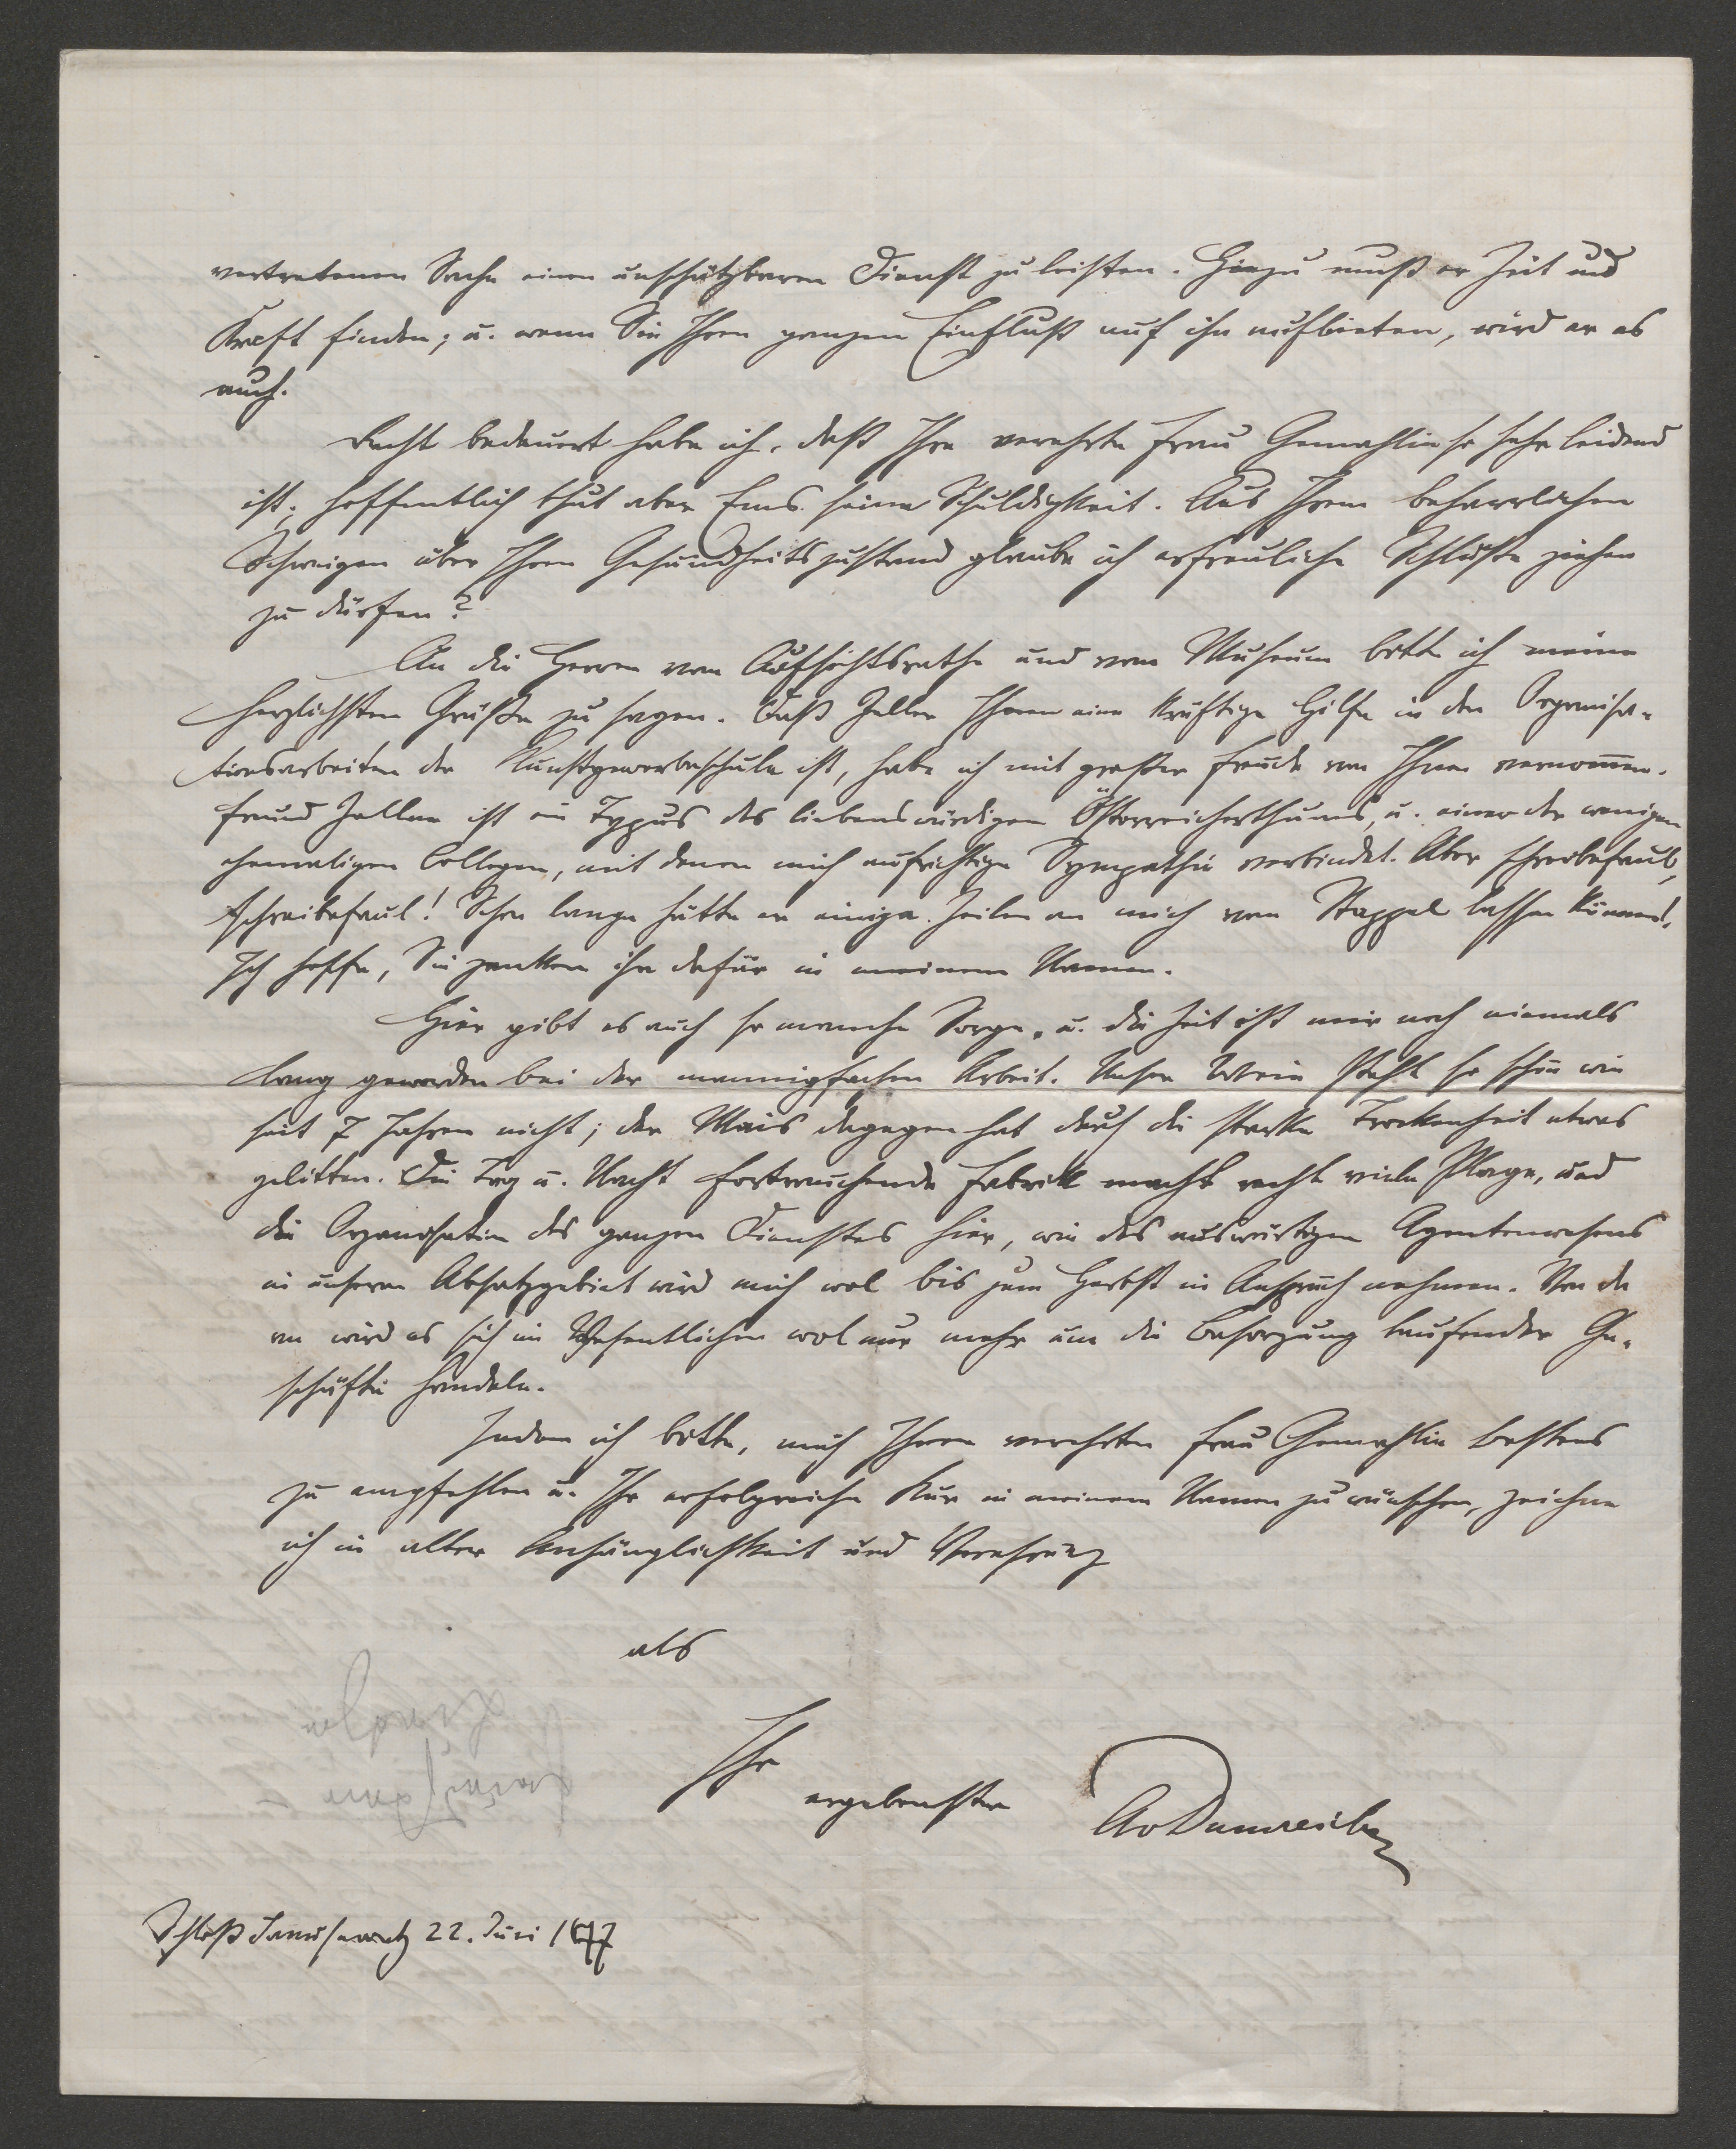 vertretenen Sache einen unschätzbaren Dienst zu leisten. Hiezu muß er Zeit und
Kraft finden; u. wenn Sie Ihren ganzen Einfluß auf ihn aufbieten, wird er es
auch.
Recht bedauert habe ich, daß Ihre verehrte Frau Gemahlin so sehr leidend
ist; hoffentlich thut aber Ems seine Schuldigkeit. Aus Ihrem beharrlichen
Schweigen über Ihren Gesundheitszustand glaube ich erfreuliche Schlüße ziehen
zu dürfen?
An die Herren vom Aufsichtsrathe und vom Museum bitte ich meine
herzlichsten Grüße zu sagen. Daß Zeller Ihnen eine kräftige Hilfe in den Organisa-
tionsarbeiten der Kunstgewerbeschule ist, habe ich mit großer Freude von Ihnen vernommen.
Freund Zeller ist ein Typus des liebenswürdigen Österreicherthums, u. einer der wenigen
ehemaligen Collegen, mit denen mich aufrichtige Sympathie verbindet. Aber schreibefaul,
schreibefaul! Schon lange hätte er einige Zeilen an mich vom Stappel lassen können!
Ich hoffe, Sie zanken ihn dafür in meinem Namen.
Hier gibt es auch so manche Sorge, u. die Zeit ist mir noch niemals
lang geworden bei der mannigfachen Arbeit. Unser Wein steht so schön wie
seit 7 Jahren nicht; der Mais dagegen hat durch die starke Trockenheit etwas
gelitten. Die Tag u. Nacht fortrauchende Fabrik macht recht viele Plage, und
die Organisation des ganzen Dienstes hier, wie des auswärtigen Agentenwesens
in unserem Absatzgebiet wird mich wol bis zum Herbst in Anspruch nehmen. Von da
an wird es sich im Wesentlichen wol nur mehr um die Besorgung laufender Ge-
schäfte handeln.
Indem ich bitte, mich Ihrer verehrten Frau Gemahlin bestens
zu empfehlen u. Ihr erfolgreiche Kur in meinem Namen zu wünschen, zeichne
ich in alter Anhänglichkeit und Verehrung
als
Ihr
ergebenster
AvDumreicher
Schloß Januševec 22. Juni 1877